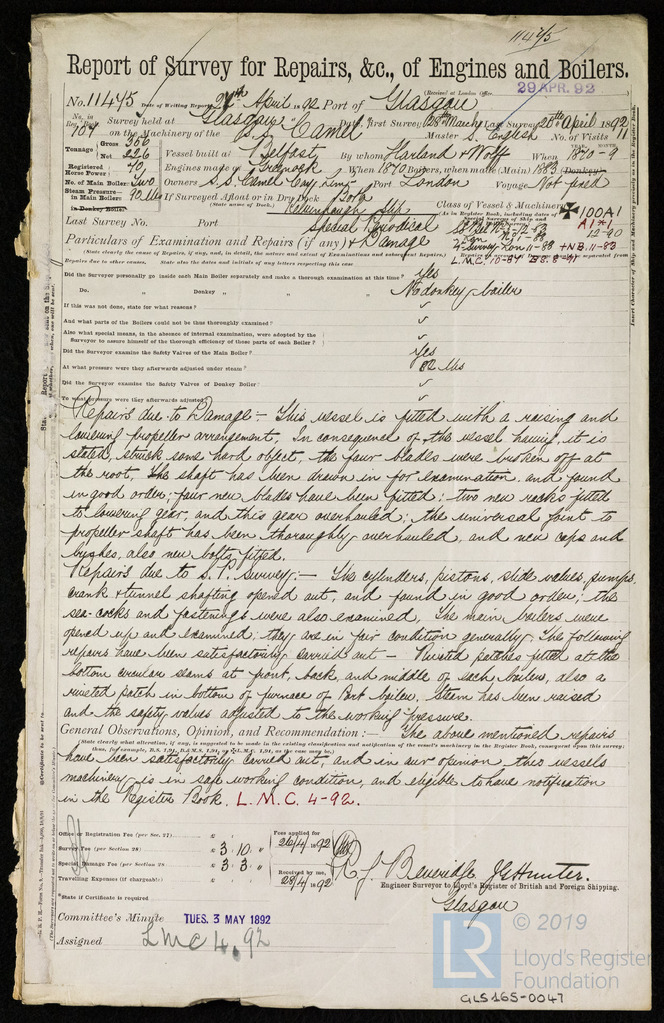 11475
Report of Survey for Repairs, &c., of Engines and Boilers.
(Received at London Office
29 APR. 92
No. 11475 Date of Writing Report 27th April 1892 Port of Glasgow
No. in Reg. Book 704 Survey held at Glasgow Date, First Survey 28th March Last Survey 20th April 1892
on the Machinery of the S.S. Camel Master S. English No. of Visits 11
Tonnage Gross 366 Net 226
Vessel built at Belfast By whom Harland & Wolff When 1870-9
Registered Horse Power 70 Engines made at Greenock When 1870 Boilers, when made (Main) 1883 (Donkey)
No. of Main Boilers Two Owners S.S. Camel Coy Limd Port London Voyage Not fixed
Steam Pressure in Main Boilers 70 lbs If Surveyed Afloat or in Dry Dock Both
in Donkey Boiler (State name of Dock.) Kelvinhaugh Slip
Class of Vessel & Machinery
(As in Register Book, including dates of
100A1
12-90
Last Survey No. Port Special Periodical
Particulars of Examination and Repairs (if any) & Damage
+NB.11-83
(State clearly the cause of Repairs, if any, and, in detail, the nature and extent of Examinations and subsequent repairs.)
Repairs due to other causes. State also the dates and initials of any letters respecting this case
L.M.C. 10-87 BS 8-91
Did the Surveyor personally go inside each Main Boiler separately and make a thorough examination at this time? Yes
Do. „ Donkey „ „ No donkey boiler
If this was not done, state for what reasons?
And what parts of the Boilers could not be thus thoroughly examined?
Also what special means, in the absence of internal examination, were adopted by the
Surveyor to assure himself of the thorough efficiency of those parts of each Boiler?
Did the Surveyor examine the Safety Valves of the Main Boiler? Yes
At what pressure were they afterwards adjusted under steam? 82 lbs
Did the Surveyor examine the Safety Valves of Donkey Boiler?
To what pressure were they afterwards adjusted
Repairs due to Damage :— This vessel is fitted with a raising and
lowering propeller arrangement. In consequence of the vessel having, it is
stated, struck some hard object, the four blades were broken off at
the root. The shaft has been drawn in for examination, and found
in good order; four new blades have been fitted; two new racks fitted
to lowering gear, and this gear overhauled; the universal joint to
propeller shaft has been thoroughly overhauled, and new caps and
bushes, also new bolts fitted.
Repairs due to S.P. Survey :— The cylinders, pistons, slide valves, pumps,
crank & tunnel shafting opened out, and found in good order; the
sea-cocks and fastenings were also examined. The main boilers were
opened up and examined; they are in fair condition generally. The following
repairs have been satisfactorily carried out — Riveted patches fitted at the
bottom circular seams at front, back and middle of each boiler, also a
riveted patch in bottom of furnace of Port boiler, steam has been raised
and the safety valves adjusted to the working pressure.
General Observations, Opinion, and Recommendation :— The above mentioned repairs
(State clearly what alteration, if any, is suggested to be made in the existing classification and notification of the vessel's machinery in the Register Book, consequent upon this survey;
thus, for example, B.S. 1,91, B.&M.S. 1,91, or L.M.C. 1,91, as the case may be.)
have been satisfactorily carried out, and in our opinion, this vessels
machinery is in safe working condition, and eligible to have notification
in the Register Book. L.M.C. 4-92.
Office or Registration Fee (per Sec. 27)
Survey Fee (per Section 28) £ 3. 10. „
Special Damage Fee (per Section 28) £ 3. 3. „
Travelling Expenses (if chargeable) £
Fees applied for 26/4/1892
Received by me, 28/4/1892
*State if Certificate is required
R. J. Beveridge J G Hunter.
Engineer Surveyor to Lloyd's Register of British and Foreign Shipping.
Glasgow
Committee's Minute TUES. 3 MAY 1892
Assigned LMC 4.92
LR © 2019
Lloyd's Register
Foundation
GLS165-0047